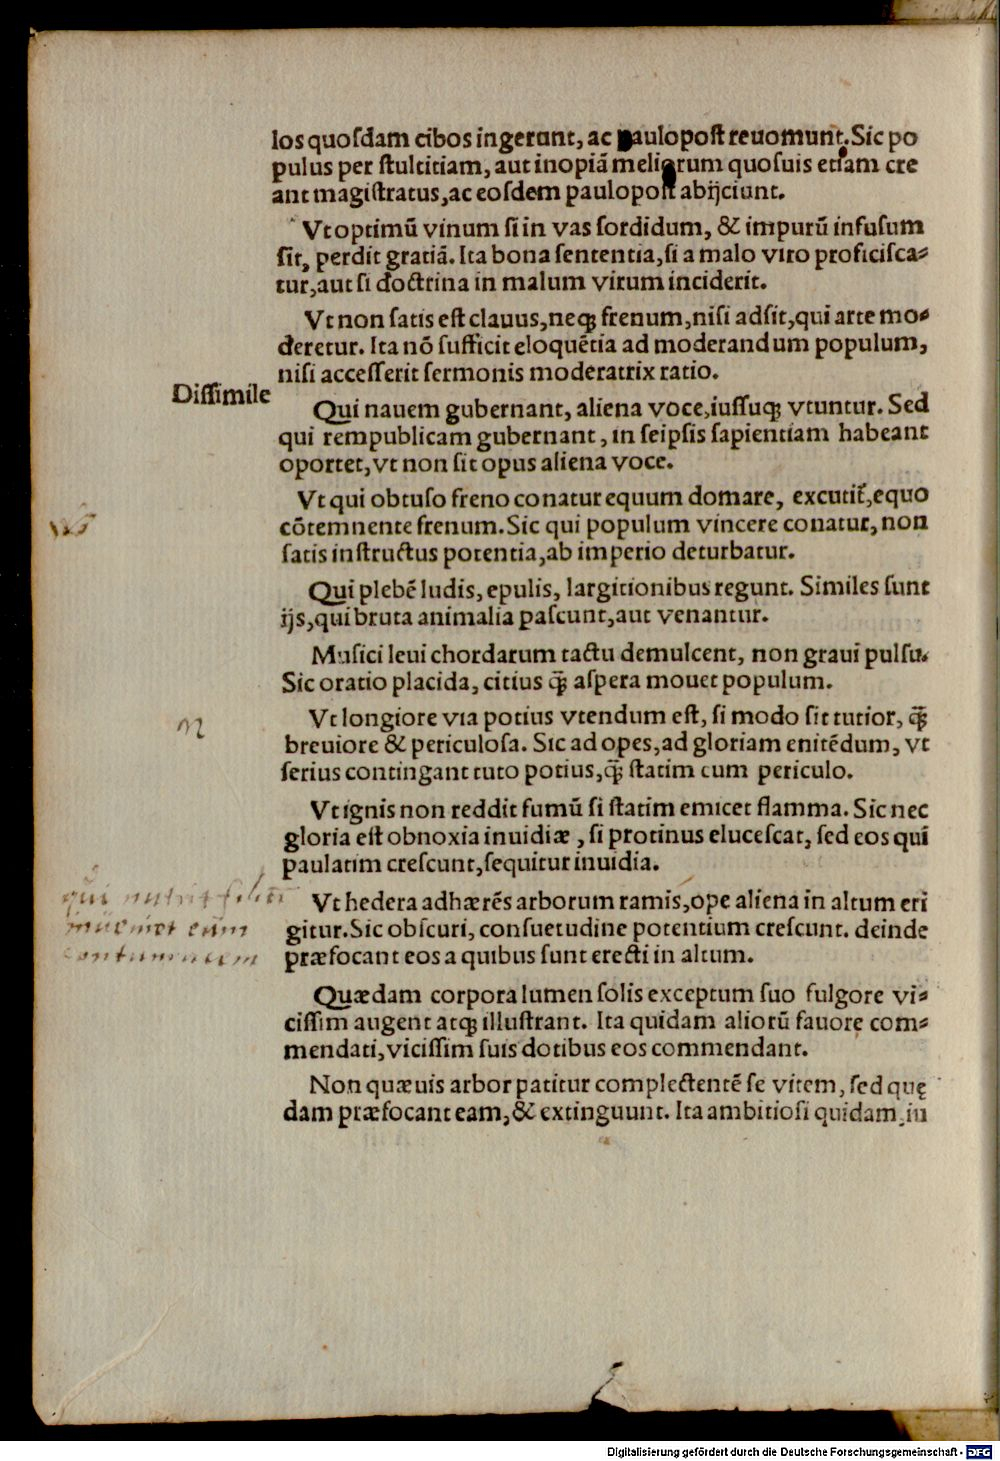 los quoſdam cibos ingerunt, ac paulopoſt reuomunt. Sic po
pulus per ſtultitiam, aut inopiã meliorum quoſuis etiam cre
ant magiſtratus, ac eoſdem paulopoſt abijciunt.
Vt optimũ vinum ſi in vas ſordidum, & impurũ infuſum
ſit, perdit gratiã. Ita bona ſententia, ſi a malo viro proficiſca-
tur, aut ſi doctrina in malum virum inciderit.
Vt non ſatis eſt clauus, neqꝫ frenum, niſi adſit, qui arte mo-
deretur. Ita nõ ſufficit eloquẽtia ad moderandum populum,
niſi acceſſerit ſermonis moderatrix ratio.
Diſſimile
Qui nauem gubernant, aliena voce, iuſſuqꝫ vtuntur. Sed
qui rempublicam gubernant, in ſeipſis ſapientiam habeant
oportet, vt non ſit opus aliena voce.
Vt qui obtuſo freno conatur equum domare, excutit᷑, equo
cõtemnente frenum. Sic qui populum vincere conatur, non
ſatis inſtructus potentia, ab imperio deturbatur.
Qui plebẽ ludis, epulis, largitionibus regunt. Similes ſunt
ijs, qui bruta animalia paſcunt, aut venantur.
Muſici leui chordarum tactu demulcent, non graui pulſu.
Sic oratio placida, citius q̃ꝫ aſpera mouet populum.
Vt longiore via potius vtendum eſt, ſi modo ſit tutior, q̃ꝫ
breuiore & periculoſa. Sic ad opes, ad gloriam enitẽdum, vt
ſerius contingant tuto potius, q̃ꝫ ſtatim cum periculo.
Vt ignis non reddit fumũ ſi ſtatim emicet flamma. Sic nec
gloria eſt obnoxia inuidiæ, ſi protinus eluceſcat, ſed eos qui
paulatim creſcunt, ſequitur inuidia.
qui nutrit
inueniet eum
contumacem
Vt hedera adhærẽs arborum ramis, ope aliena in altum eri
gitur. Sic obſcuri, conſuetudine potentium creſcunt. deinde
præfocant eos a quibus ſunt erecti in altum.
Quædam corpora lumen ſolis exceptum ſuo fulgore vi-
ciſſim augent atqꝫ illuſtrant. Ita quidam aliorũ fauore com-
mendati, viciſſim ſuis dotibus eos commendant.
Non quæuis arbor patitur complectentẽ ſe vitem, ſed quę
dam præfocant eam, & extinguunt. Ita ambitioſi quidam, iu
Digitalisierung gefördert durch die Deutsche Forschungsgemeinschaft - DFG